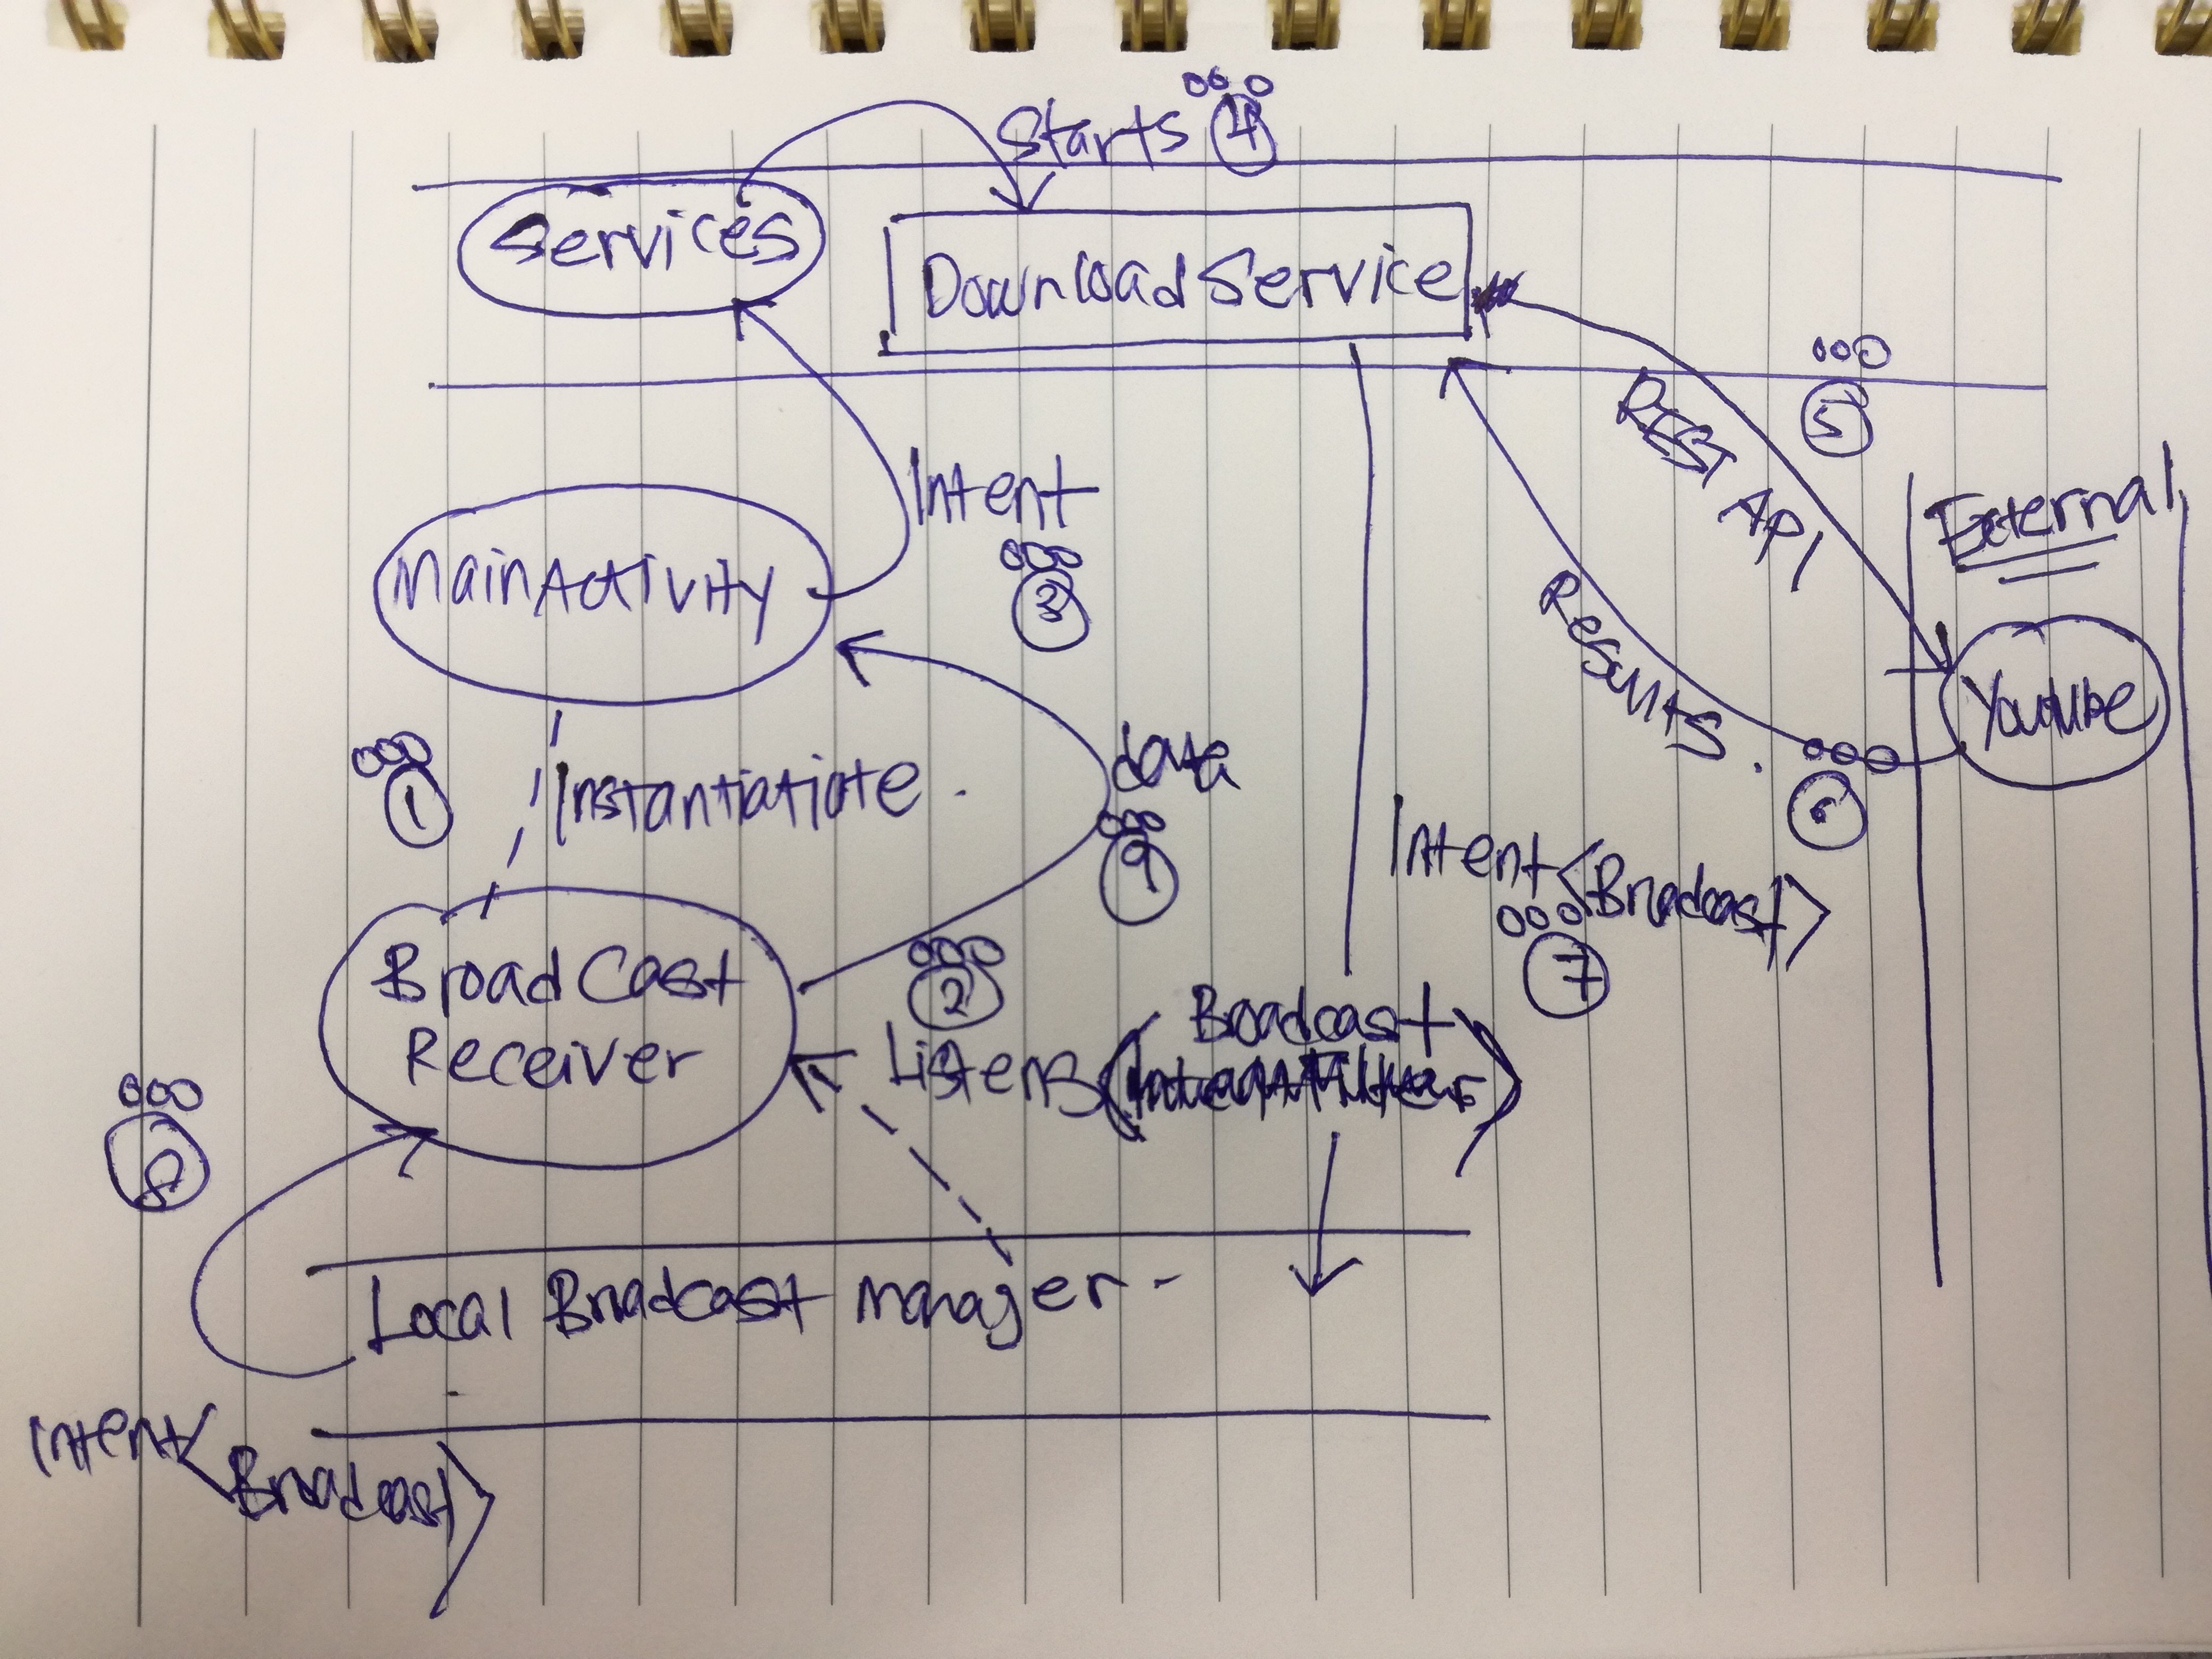 Starts
4
Services
DownloadService
5
REST API
External
Intent
3
MainActivity
Results.
Youtube
6
1
Instantiatiate.
data
9
Intent<Broadcast>
7
BroadCast
Receiver
2
Listens
Broadcast
8
Local Broadcast manager-
Intent<
Broadcast>